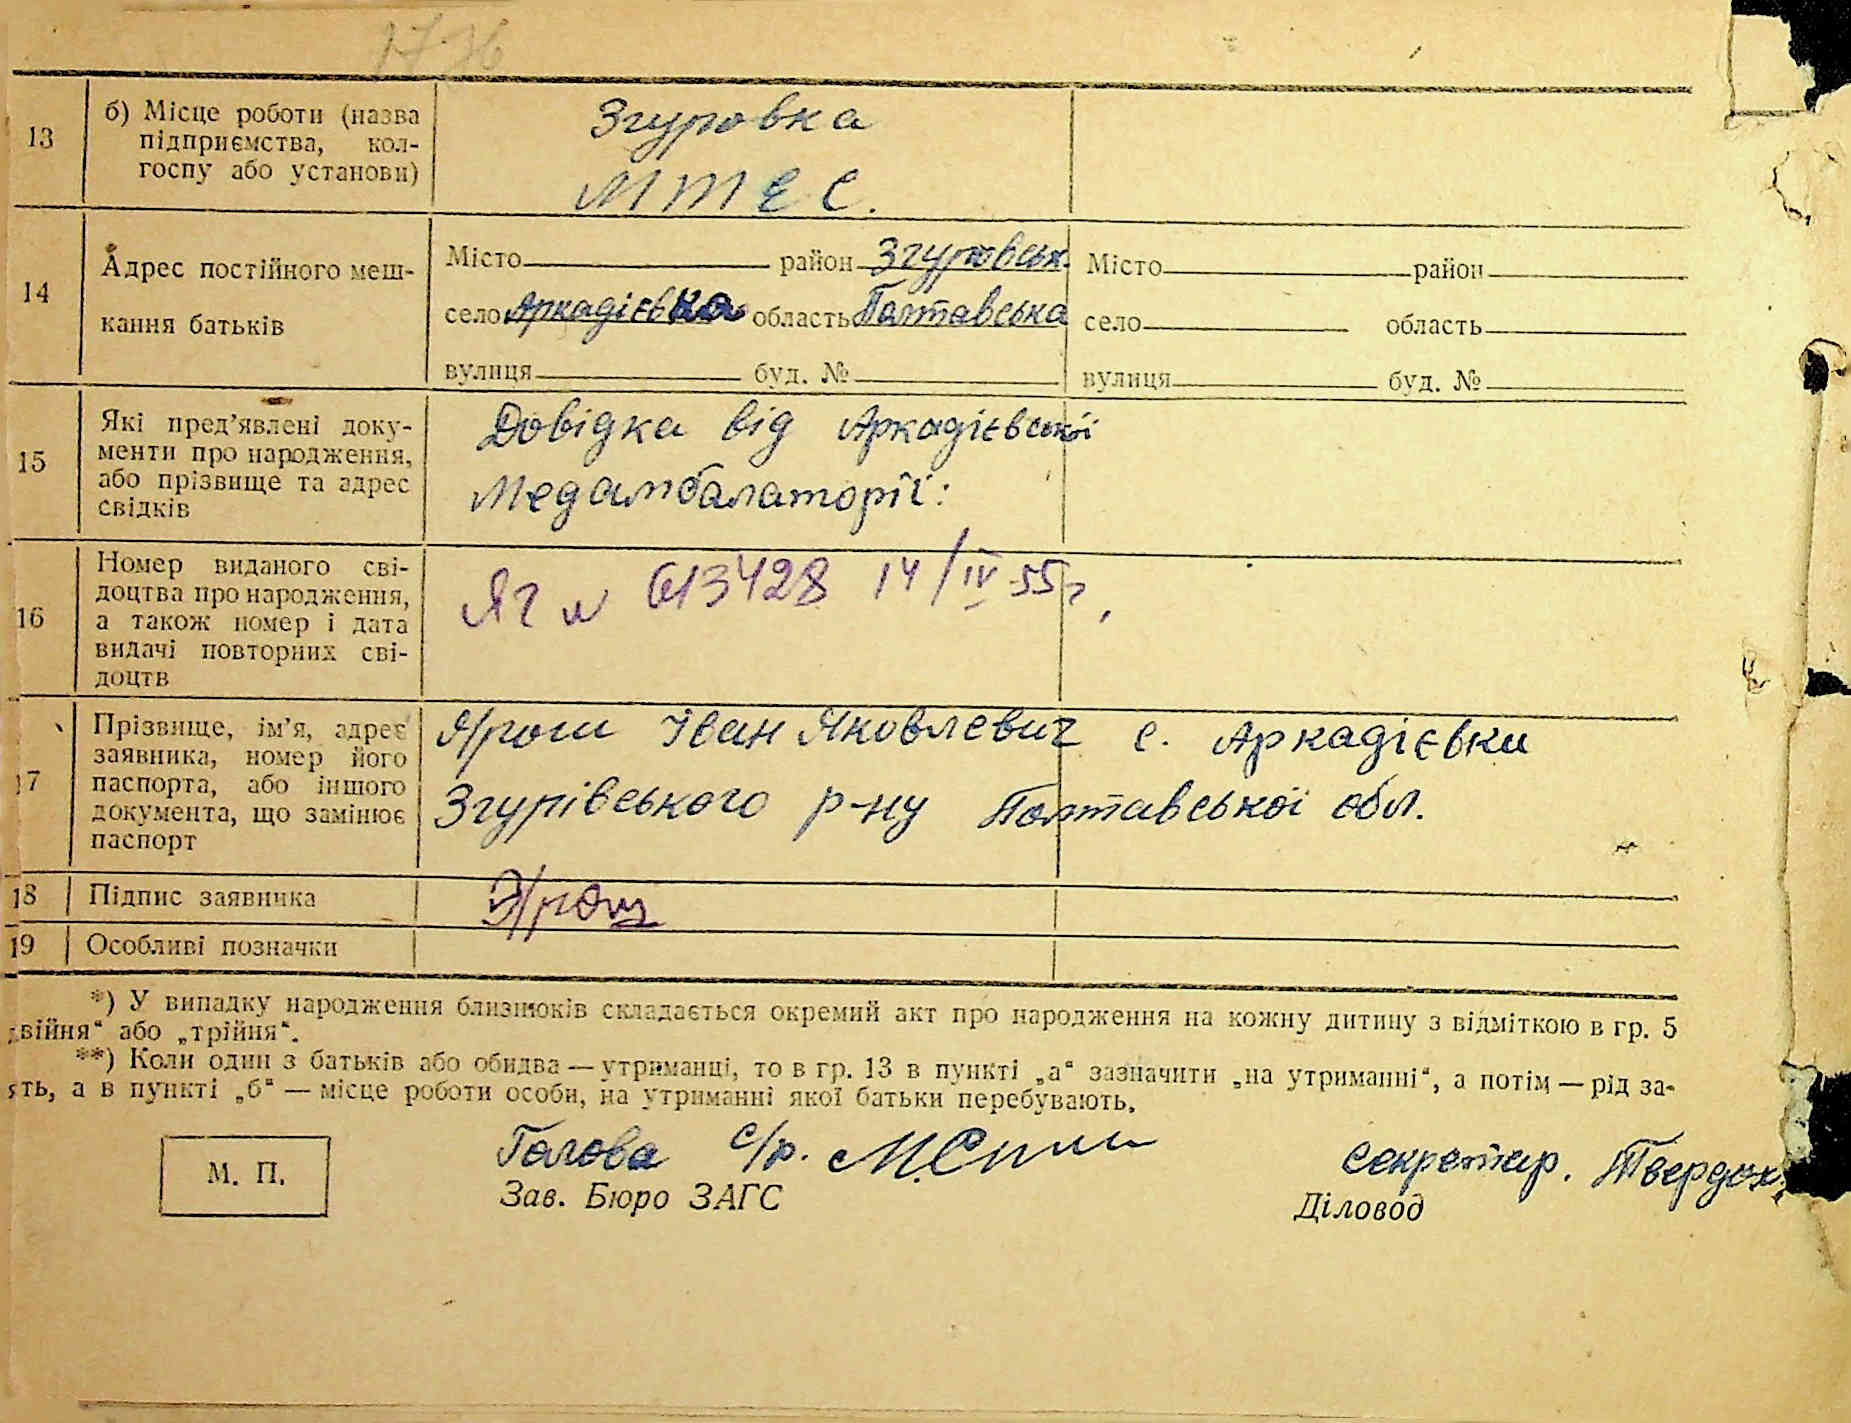 17 76
13 б) Місце роботи (назва Згуровка
підприємства, кол-
госпу або установи) МТЕС.
14 Адрес постійного меш- Місто район Згуровськ. Місто район
кання батьків село Аркадієвка область Полтавська село область
вулиця буд. № вулиця буд. №
15 Які пред’явлені доку- Довідка від Аркадієвської
менти про народження,
або прізвище та адрес Медамбалаторії:
свідків
16 Номер виданого сві- ЯГ № 613428 14/IV-55г.
доцтва про народження,
а також номер і дата
видачі повторних сві-
доцтв
17 Прізвище, ім’я, адрес Ярош Іван Яковлевич с. Аркадієвки
заявника, номер його
паспорта, або іншого Згурівського р-ну Полтавської обл.
документа, що замінює
паспорт
18 Підпис заявника Ярош
19 Особливі позначки
*) У випадку народження близнюків складається окремий акт про народження на кожну дитину з відміткою в гр. 5
двійня“ або „трійня“.
**) Коли один з батьків або обидва — утриманці, то в гр. 13 в пункті „а“ зазначити „на утриманні“, а потім — рід за-
ять, а в пункті „б“ — місце роботи особи, на утриманні якої батьки перебувають.
Голова с/р. Секретар. Твердох
М. П. Зав. Бюро ЗАГС Діловод